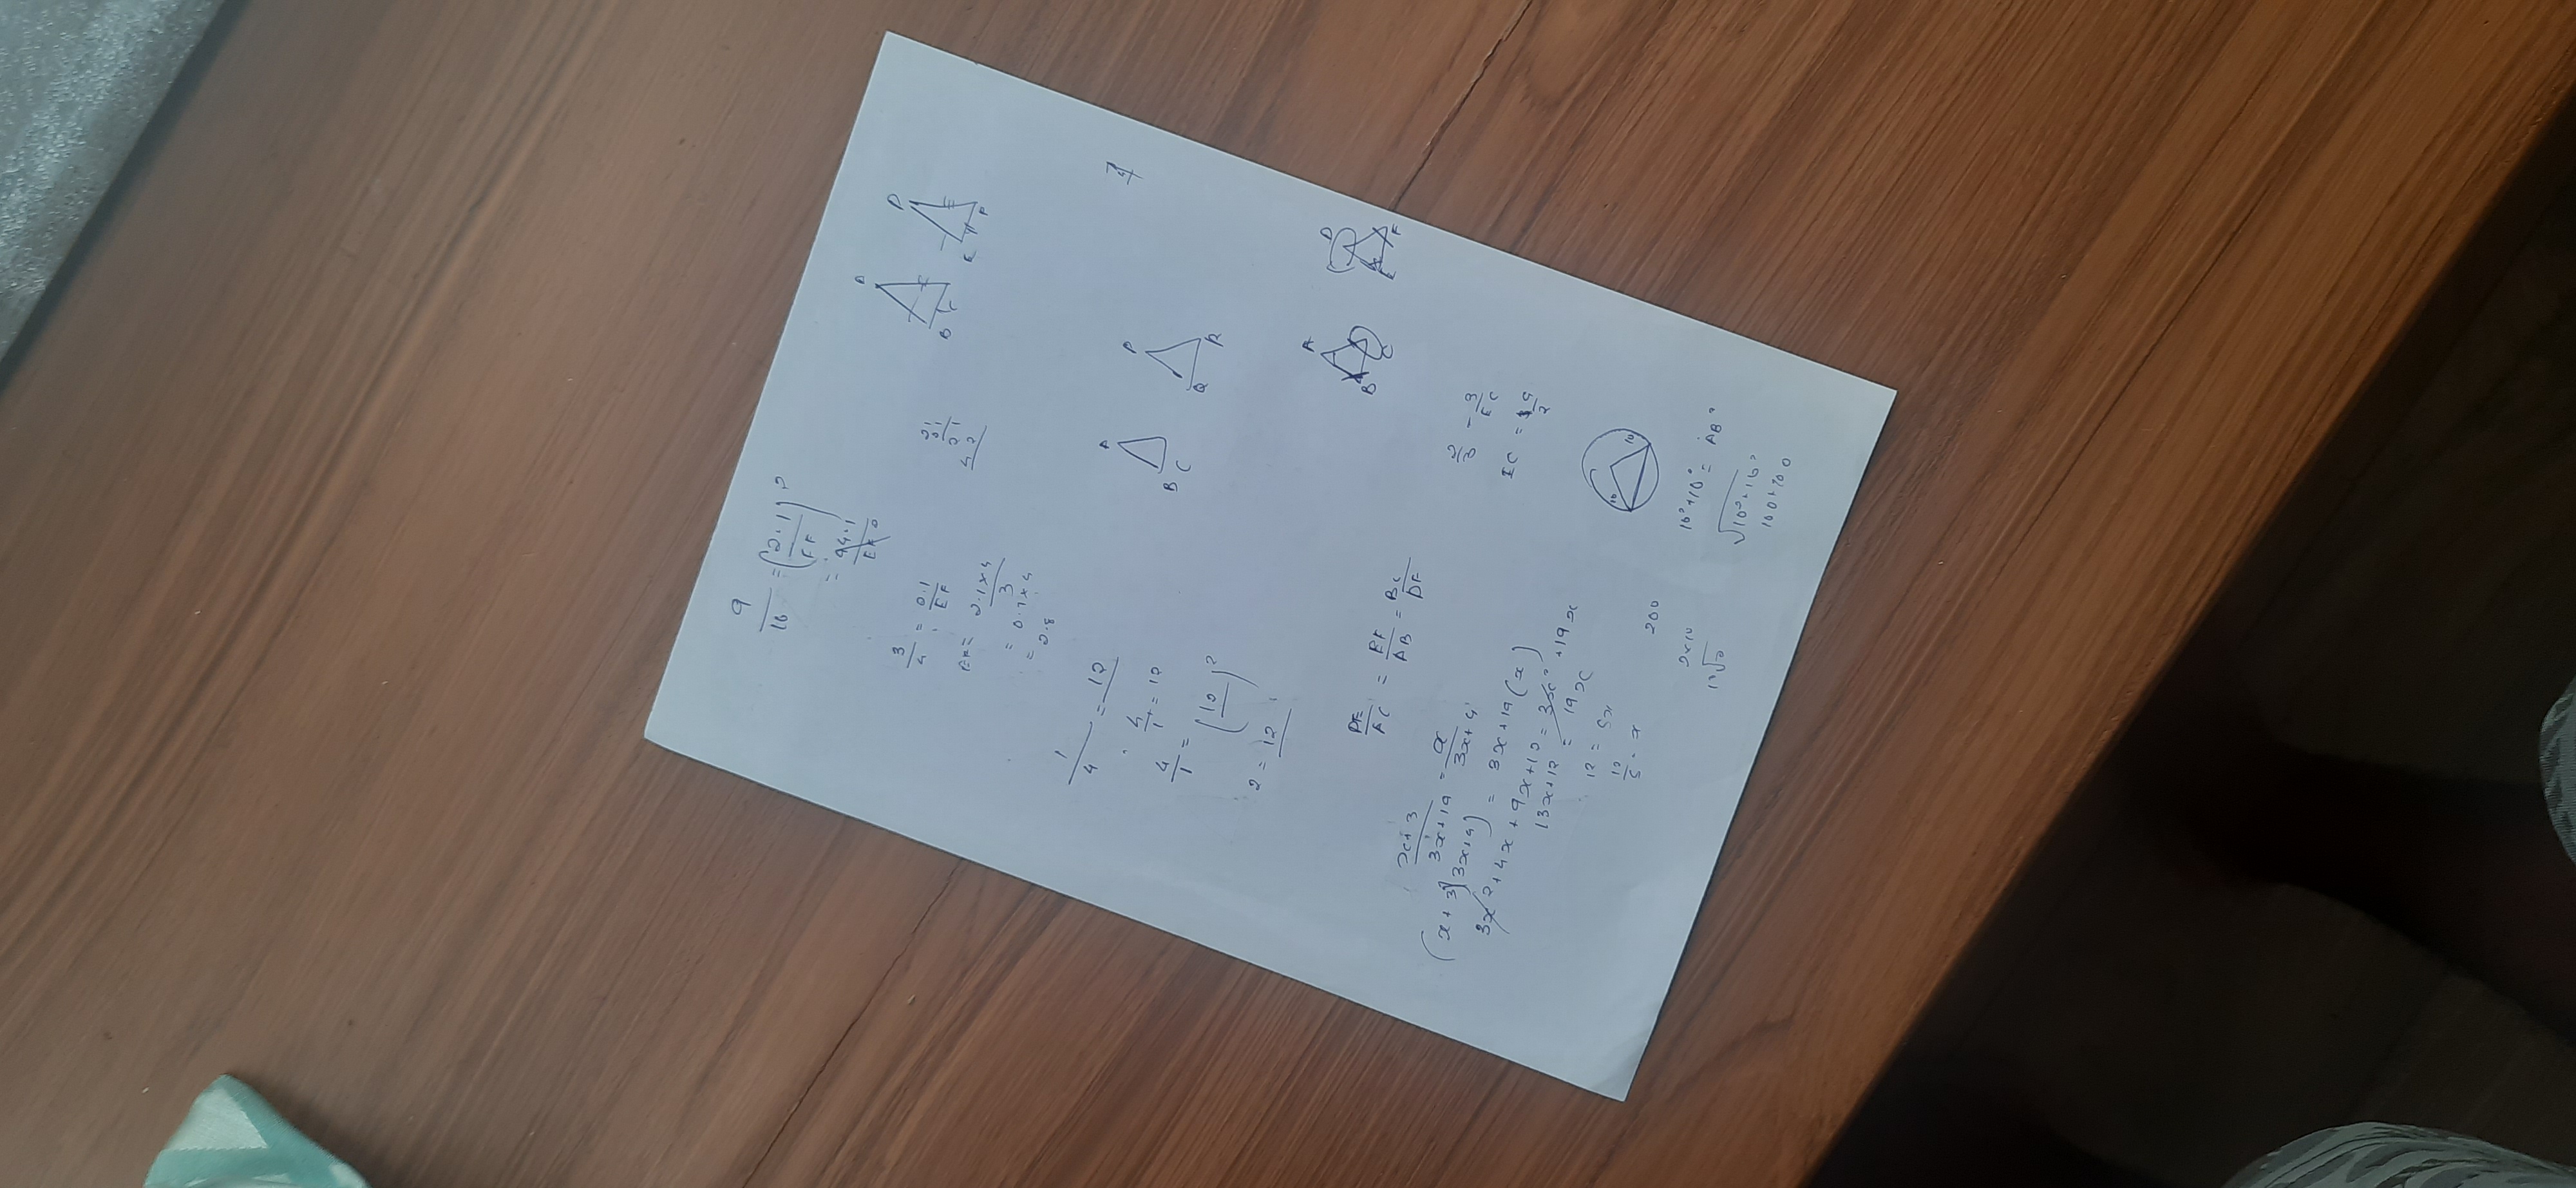 9
16 = (2.1
EF)²
= 44.1
EF²
3
4 = 2.1
EF
EF = 2.1×4
3
= 0.7×4
= 2.8
21
21
21
42
A
B C
D
E F
1
4 = 12
4
1 = 12
4
1 = (12)²
2 = 12
A
B C
P
Q R
7
A
B C
D
E F
DE
AC = EF
AB = BC
DF
x+3
3x+19 = x
3x+4
(x+3)(3x+4) = 3x+19(x)
3x²+4x+9x+12 = 3x²+19x
13x+12 = 19x
12 = 5x
12
5 = x
2
3 = 3
EC
EC = 9
2
10 10
10²+10² = AB²
√10²+10²
100+100
200
2×10
10√2